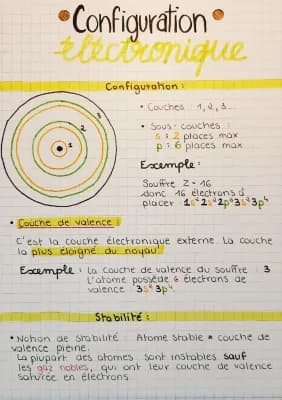 Configuration
électronique
Configuration :
• Couches : 1, 2, 3...
• Sous-couches :
s : 2 places max
p : 6 places max
Exemple :
Souffre Z = 16
donc 16 électrons à
placer : 1s² 2s² 2p⁶ 3s² 3p⁴
1
2
3
• Couche de valence :
C'est la couche électronique externe. La couche
la plus éloigné du noyau
Exemple : la couche de valence du souffre : 3
L'atome possède 6 électrons de
valence 3s² 3p⁴.
Stabilité :
• Notion de stabilité : Atome stable = couche de
valence pleine.
La plupart des atomes sont instables sauf
les gaz nobles, qui ont leur couche de valence
saturée en électrons.